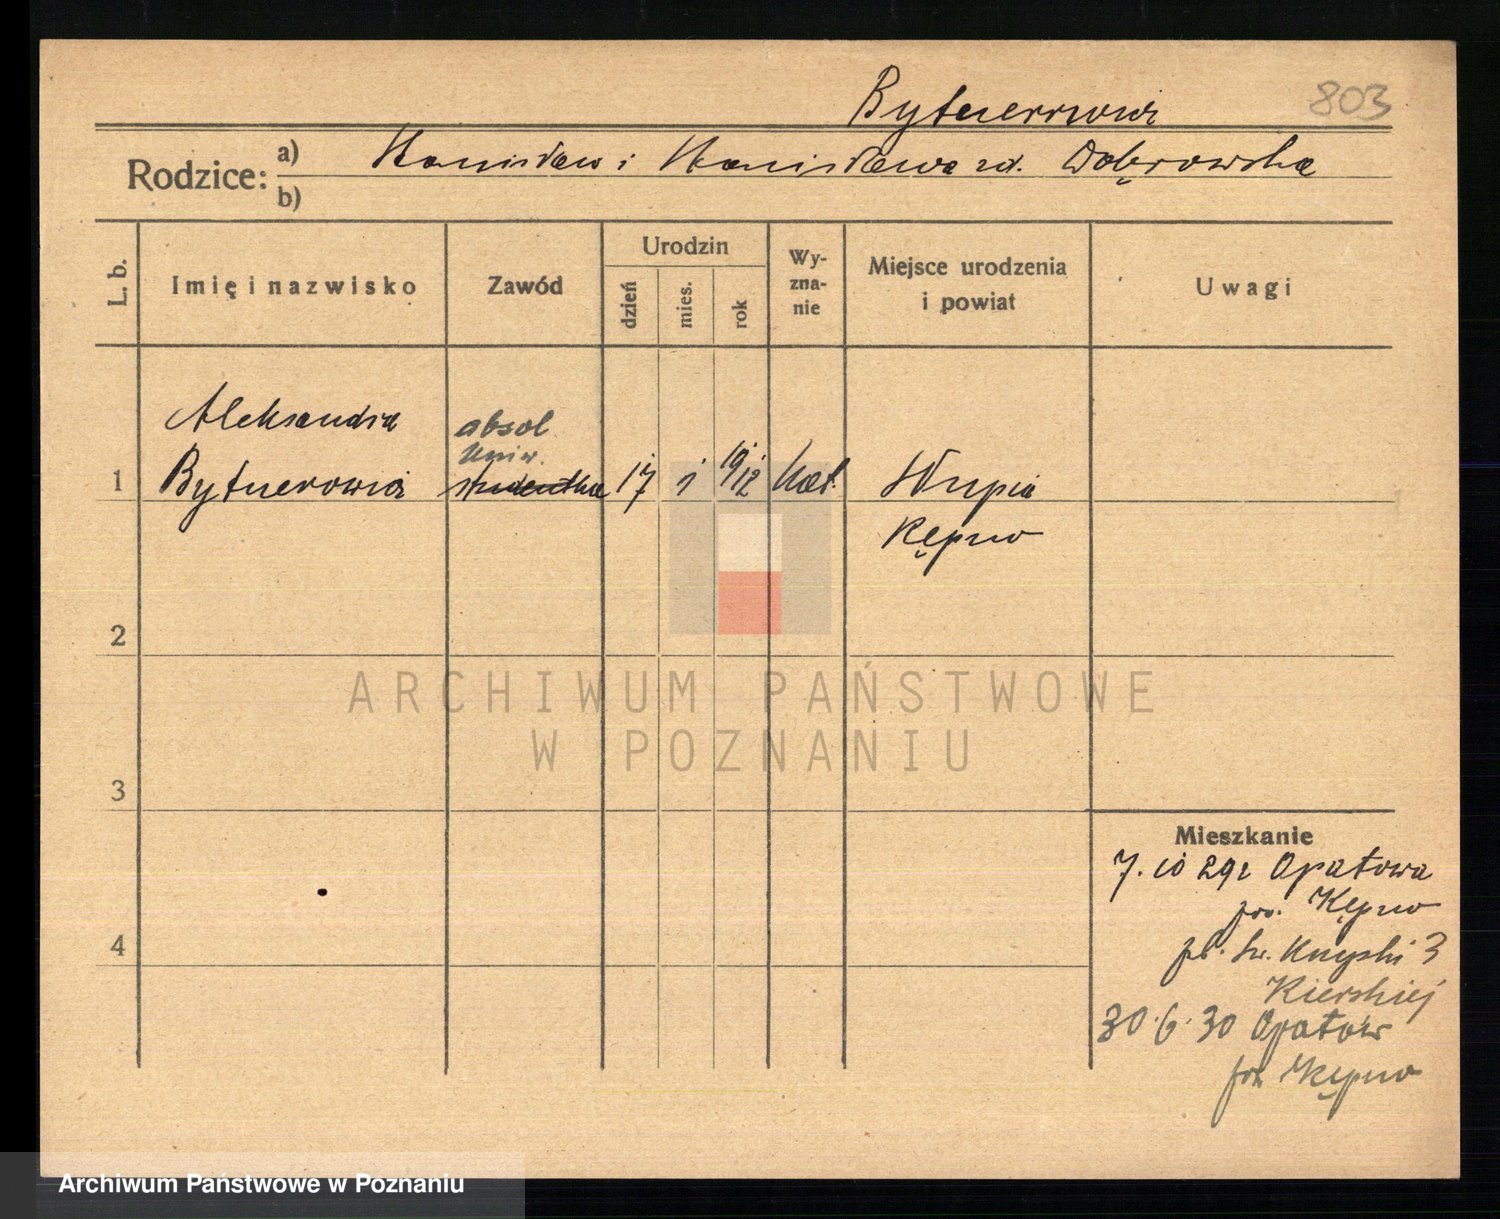 Bytnerowicz
803
Rodzice: a) Stanisław i Stanisława zd. Dąbrowska
b)
L. b.
Imię i nazwisko
Zawód
Urodzin
dzień
mies.
rok
Wy-
zna-
nie
Miejsce urodzenia
i powiat
Uwagi
Aleksandra
absol
Uniw.
1 Bytnerowicz studentka 17 1 1912 kat. Słupia
Kępno
2
ARCHIWUM PAŃSTWOWE
W POZNANIU
3
Mieszkanie
7. 10 29 z Opatowa
pow. Kępno
pl. Św. Krzyski 3
4
Kierskiej
30.6.30 Opatów
pow Kępno
Archiwum Państwowe w Poznaniu